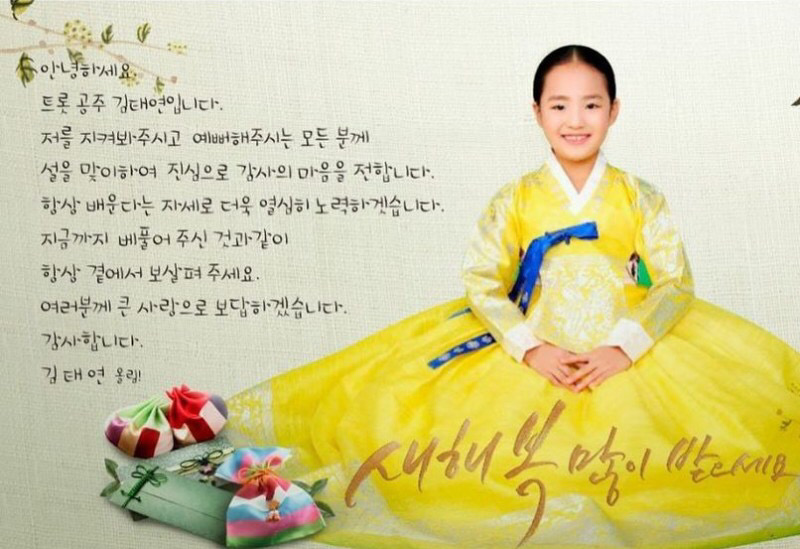 안녕하세요.
트롯 공주 김태연입니다.
저를 지켜봐주시고 예뻐해주시는 모든 분께
설을 맞이하여 진심으로 감사의 마음을 전합니다.
항상 배운다는 자세로 더욱 열심히 노력하겠습니다.
지금까지 베풀어 주신 것과같이
항상 곁에서 보살펴 주세요.
여러분께 큰 사랑으로 보답하겠습니다.
감사합니다.
김태연 올림!
새해 복 많이 받으세요